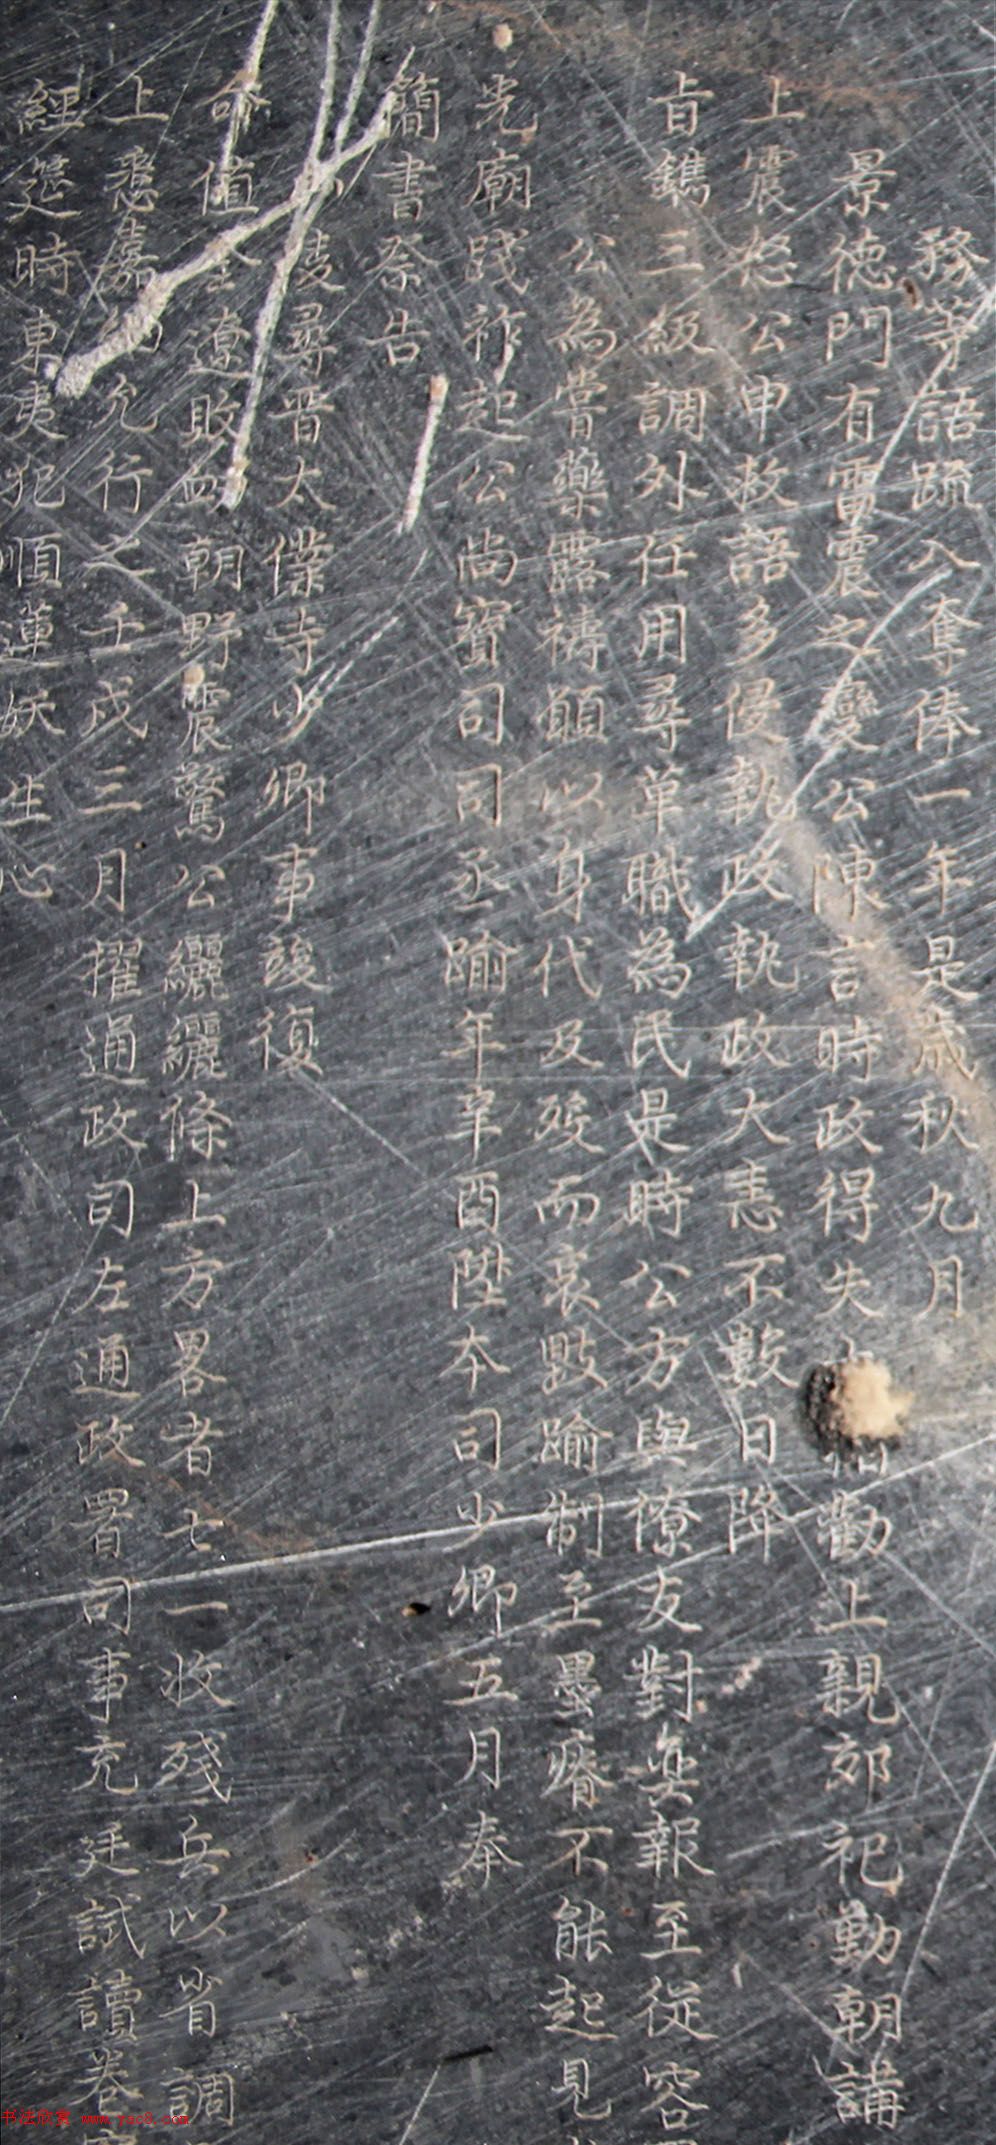 務等語疏入奪俸一年是歲秋九月
景德門有雷震之變公陳言時政得失勸上親郊祀勤朝講
上震怒公申救語多侵執政執政大恚不數日降
旨鐫三級調外任用尋革職為民是時公方與僚友對奕報至從容
公為嘗藥露禱願以身代及歿而哀毀踰制至墨瘠不能起見
光廟踐祚起公尚寶司司丞踰年辛酉陞本司少卿五月奉
簡書祭告
陵尋晉太僕寺少卿事竣復
命值遼敗衄朝野震驚公纚纚條上方畧者七一收殘兵以省調
上意嘉允行之壬戌三月擢通政司左通政署司事充廷試讀卷
經筵時東夷犯順蓮妖生心
书法欣赏 www.yac8.com